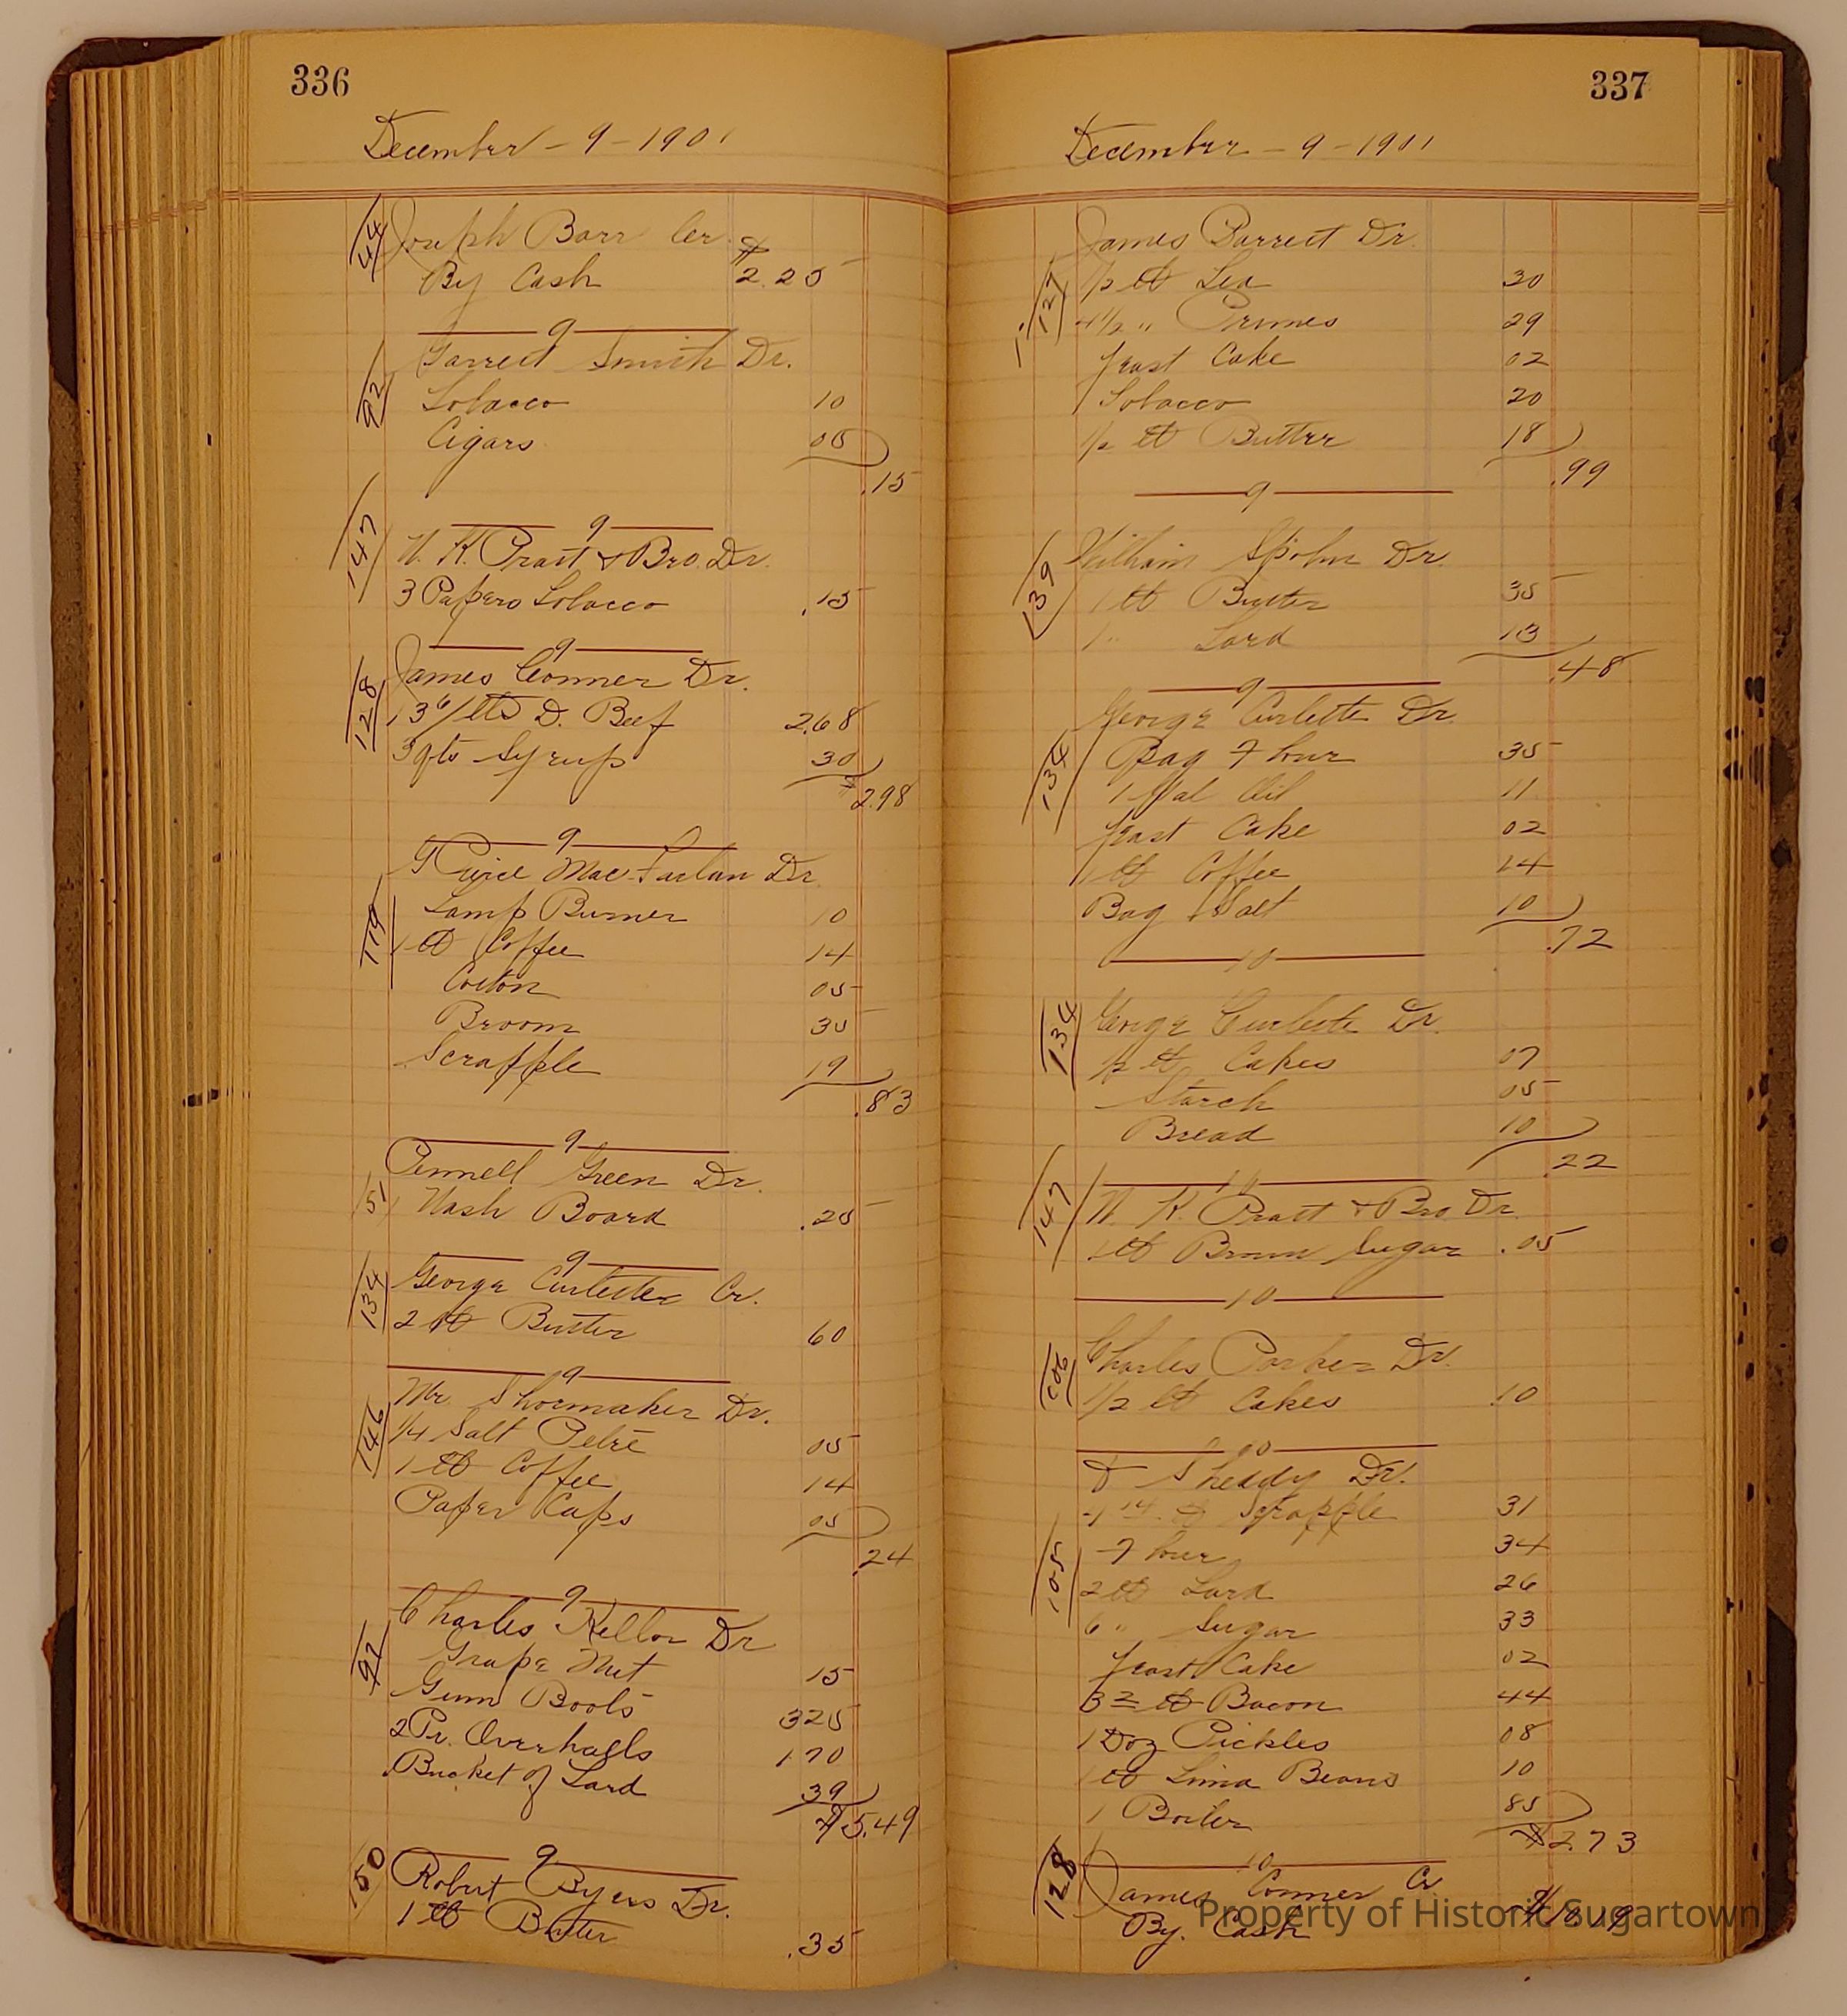 336
December - 9 - 1901
44 Joseph Barr Cr.
By Cash $2.25
9
92 Garrett Smith Dr.
Tobacco 10
Cigars 05
.15
9
147 W. K. Pratt & Bro. Dr.
3 Papers Tobacco .15
9
128 James Conner Dr.
13 6/ lbs D. Beef 2.68
3 qts Syrup 30
$2.98
9
Mac Farlan Dr
119 Lamp Burner 10
1 lb Coffee 14
Cotton 05
Broom 35
Scrapple 19
.83
9
Pennell Green Dr.
151 Wash Board .25
9
134 George Curlette Cr.
2 lb Butter 60
9
146 Mr. Shoemaker Dr.
1/4 Salt Petre 05
1 lb Coffee 14
Paper Caps 05
.24
9
Charles Kellor Dr
92 Grape Nut 15
Gum Boots 325
2 Pr. Overhalls 1.70
Bucket of Lard 39
$5.49
9
150 Robert Byers Dr.
1 lb Butter .35
337
December - 9 - 1901
James Barrett Dr.
127 1/2 lb Tea 30
4 1/2 " Prunes 29
Yeast Cake 02
Tobacco 20
1/2 lb Butter 18
.99
9
139 William Spohn Dr.
1 lb Butter 35
1 " Lard 13
.48
9
George Curlette Dr.
134 Bag Flour 35
1 Gal Oil 11
Yeast Cake 02
1 lb Coffee 14
Bag Salt 10
.72
10
134 George Curlette Dr.
1/2 lb Cakes 07
Starch 05
Bread 10
.22
10
147 W. K. Pratt & Bro Dr.
1 lb Brown Sugar .05
10
106 Charles Parker Dr.
1/2 lb Cakes .10
10
Sheddy Dr.
Scrapple 31
105 Flour 34
2 lb Lard 26
6 " Sugar 33
Yeast Cake 02
3 2 lb Bacon 44
1 Doz Pickles 08
1 lb Lima Beans 10
1 Boiler 85
$2.73
10
128 James Conner Cr
By. Cash
Property of Historic Sugartown